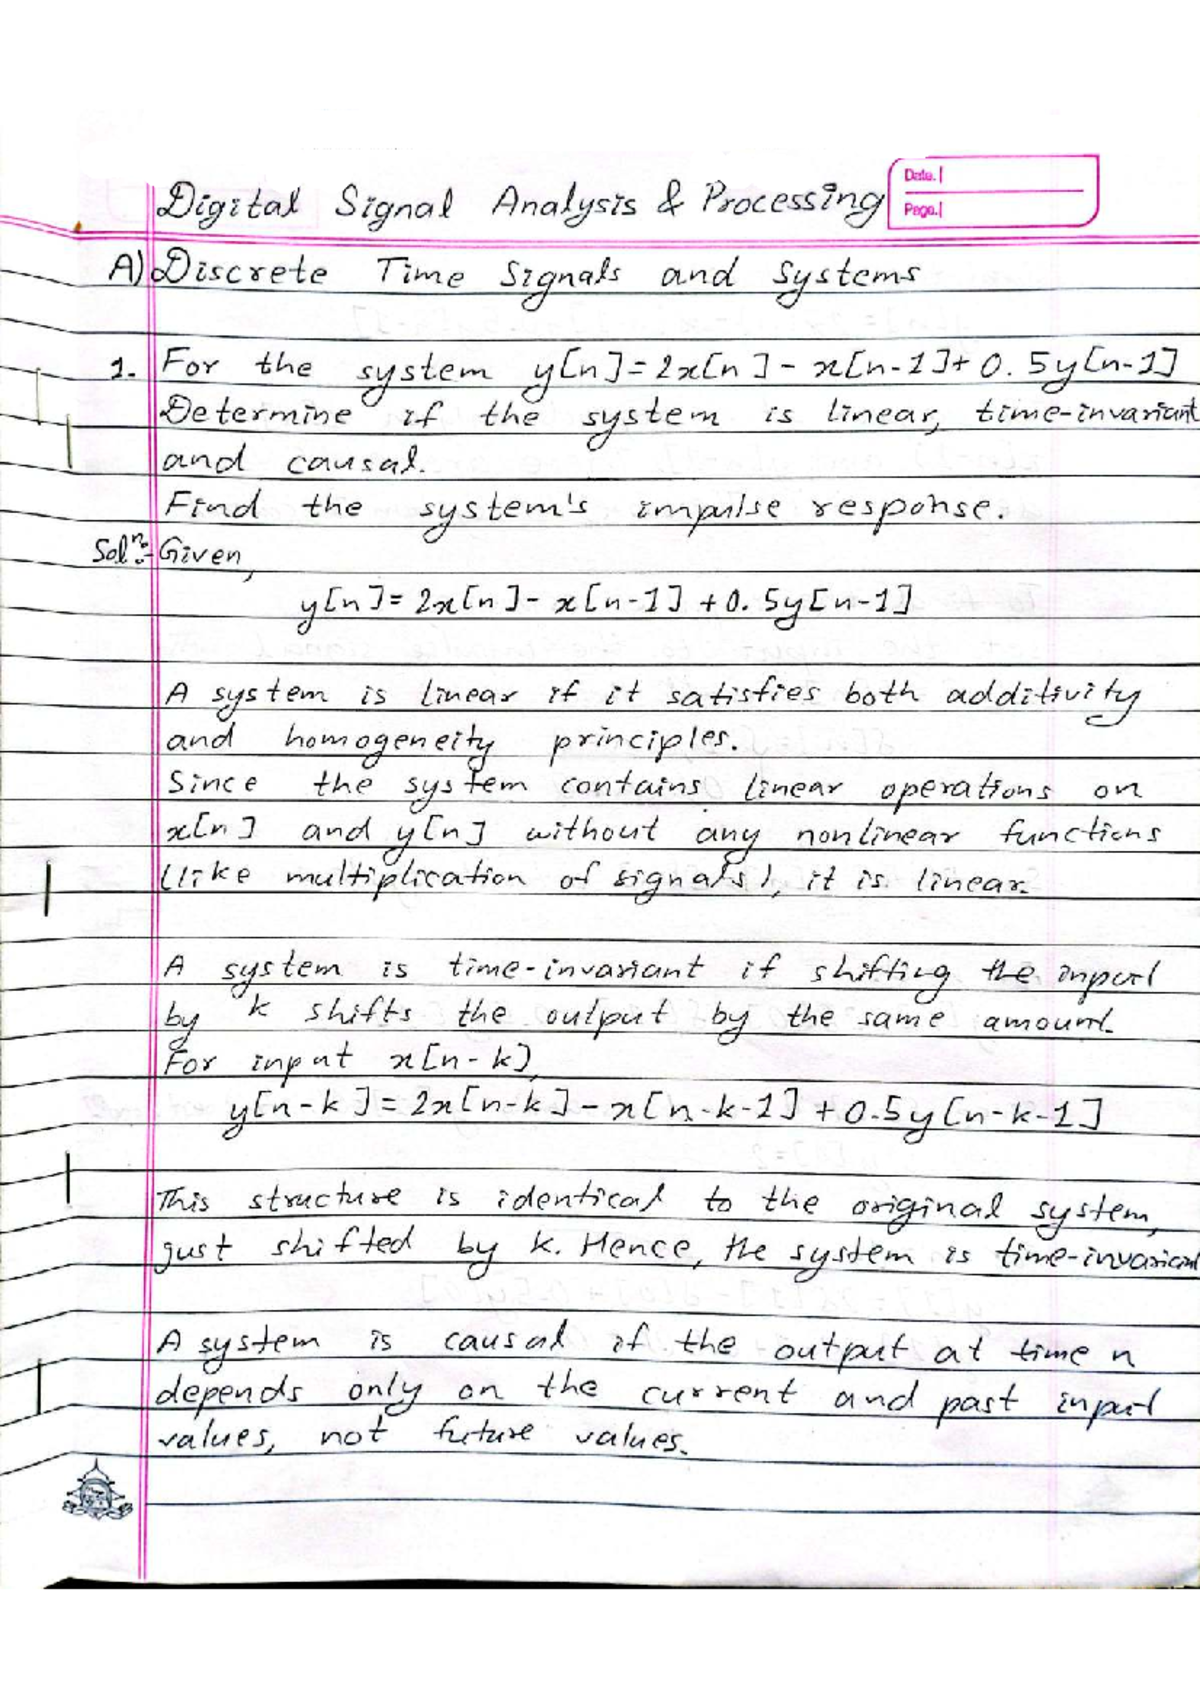 Digital Signal Analysis & Processing
Date.
Page.
A) Discrete Time Signals and Systems
1. For the system y[n]=2x[n]-x[n-1]+0.5y[n-1]
Determine if the system is linear, time-invariant
and causal.
Find the system's impulse response.
Solⁿ:- Given,
y[n]=2x[n]-x[n-1]+0.5y[n-1]
A system is linear if it satisfies both additivity
and homogeneity principles.
Since the system contains linear operations on
x[n] and y[n] without any nonlinear functions
(like multiplication of signals), it is linear.
A system is time-invariant if shifting the input
by k shifts the output by the same amount.
For input x[n-k],
y[n-k]=2x[n-k]-x[n-k-1]+0.5y[n-k-1]
This structure is identical to the original system,
just shifted by k. Hence, the system is time-invariant
A system is causal if the output at time n
depends only on the current and past input
values, not future values.